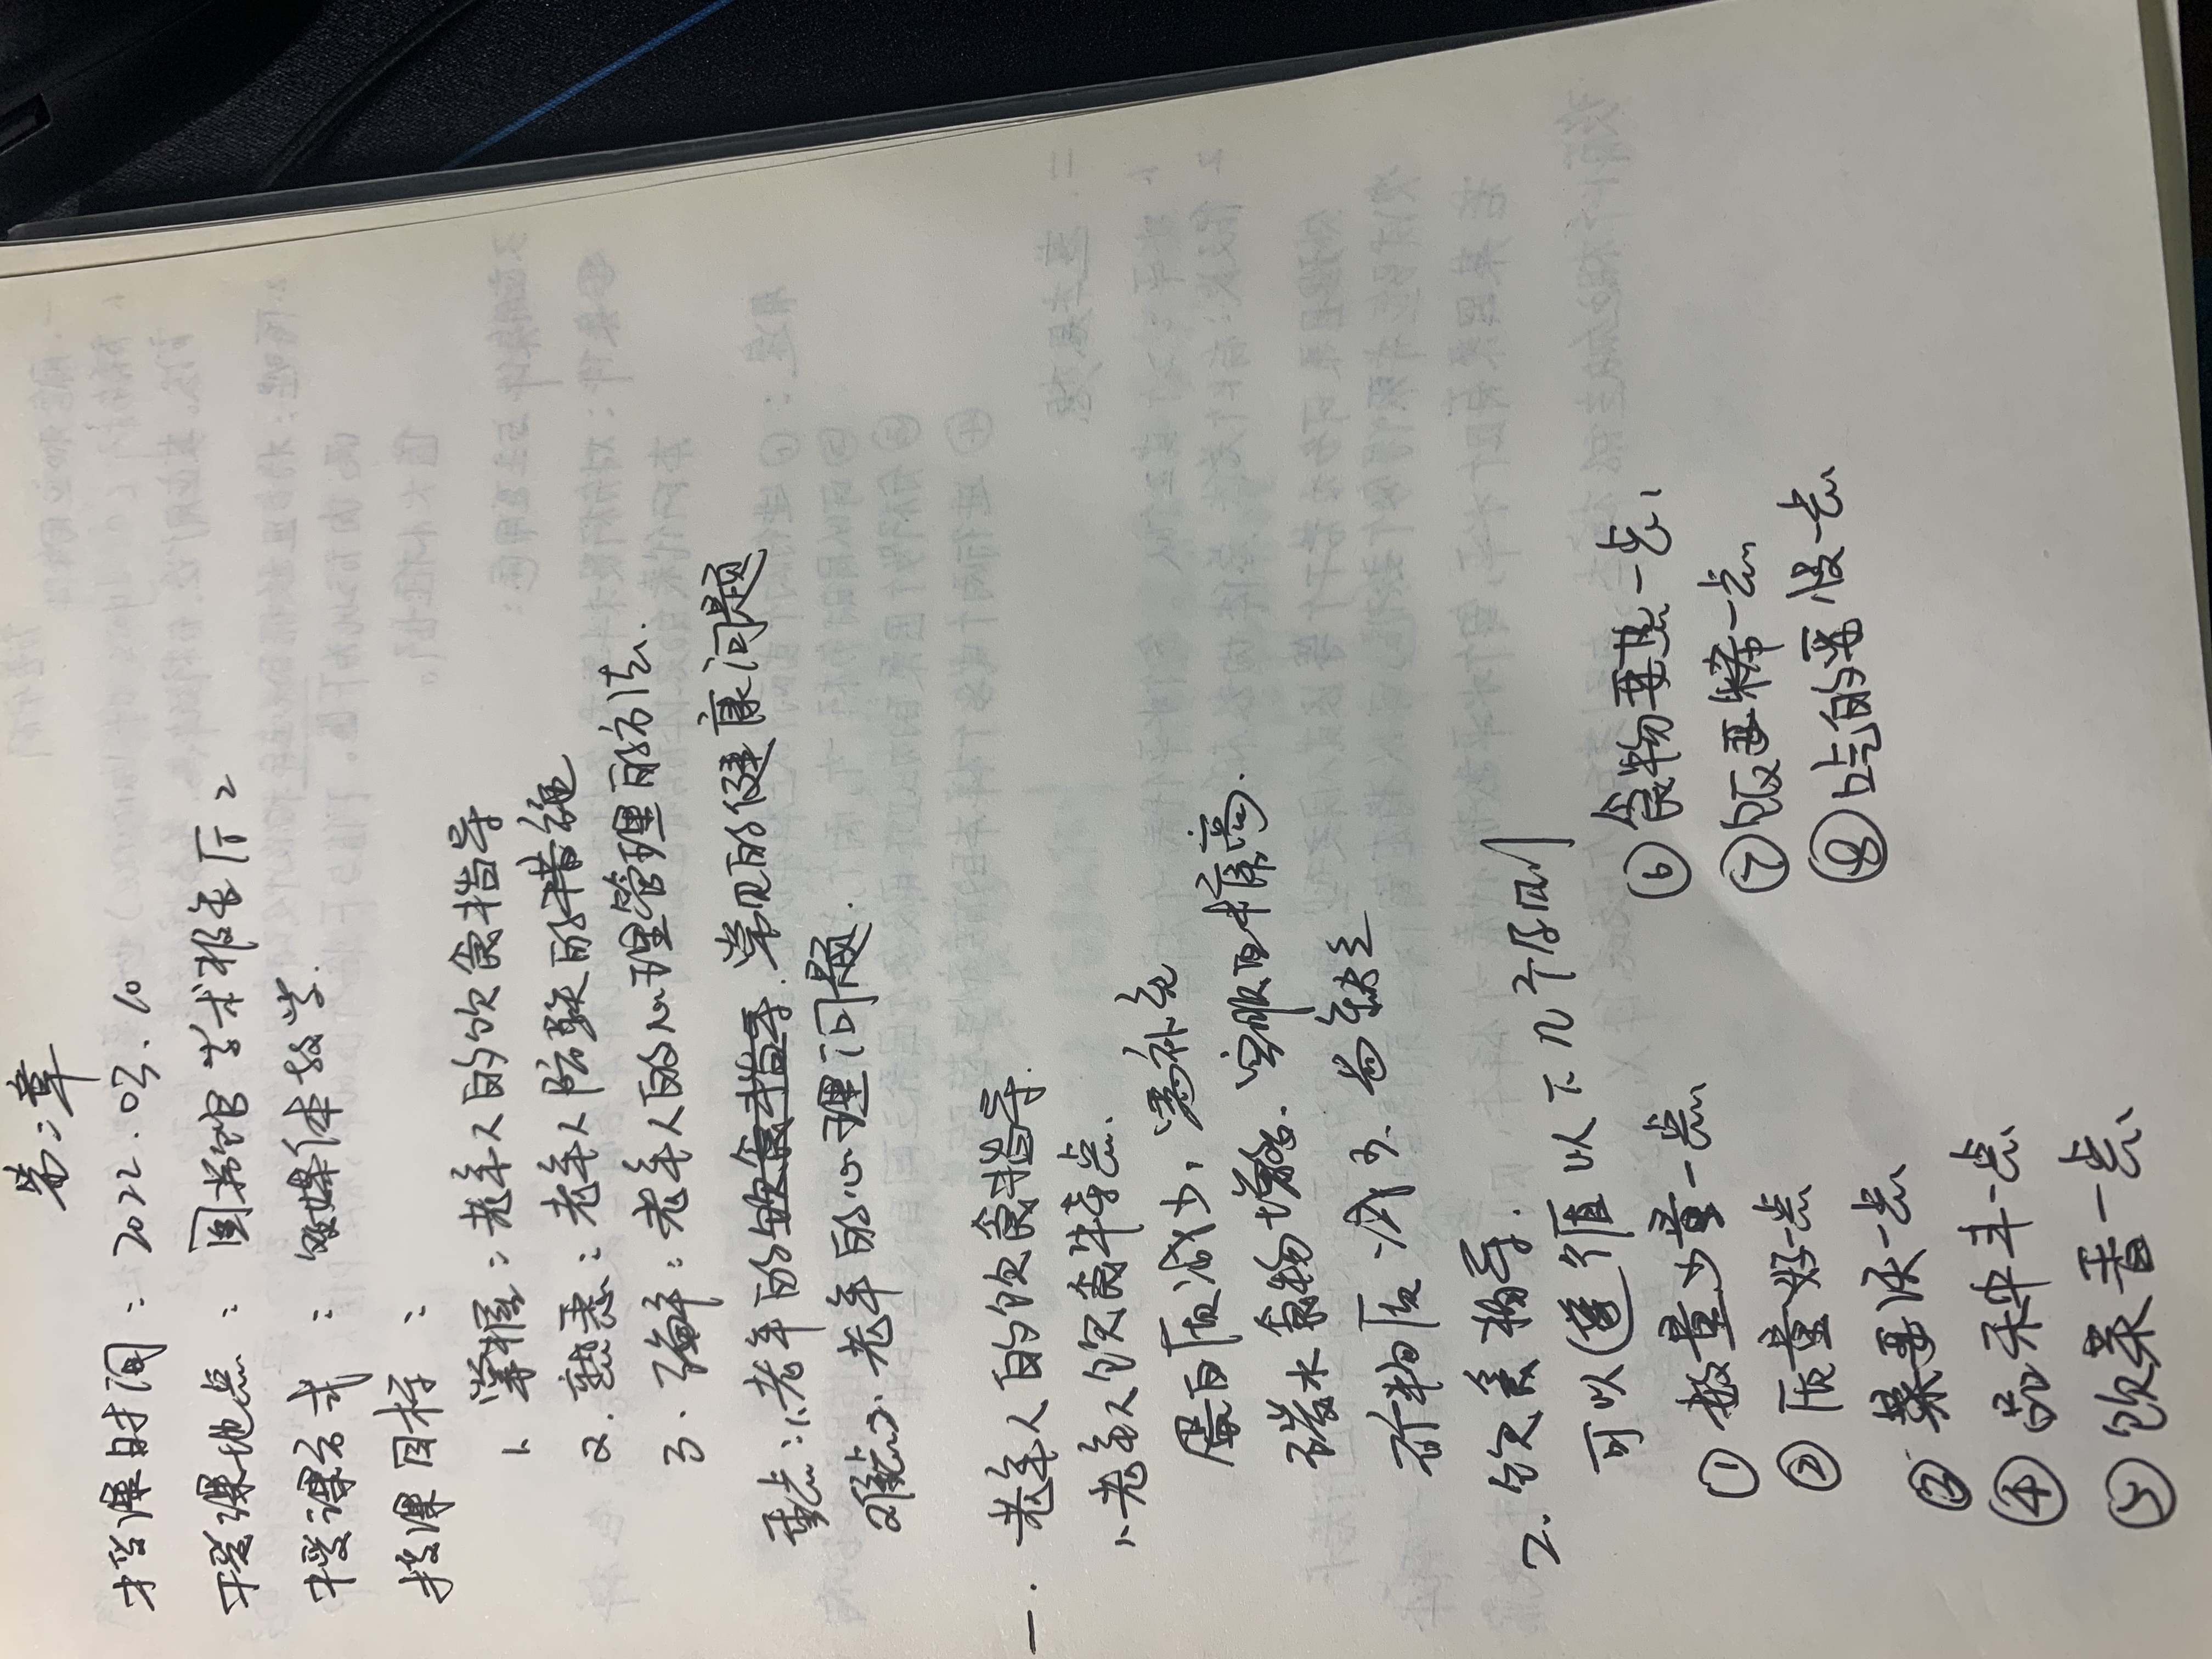 第二章
授课时间：2022.03.10
授课地点：图书馆学术报告厅2
授课方式：多媒体教学.
授课目标：
1. 掌握：老年人的饮食指导
2. 熟悉：老年人防跌的措施
3. 了解：老年人的心理管理的方法.
重点：1.老年的饮食指导.常见的健康问题
难点：2.老年的心理问题.
一. 老年人的饮食指导.
1、老年人饮食特点.
蛋白质减少，需补充
碳水食物增多.
质减少.
2. 饮食指导.
可以遵循以下几个原则
① 数量少量一点
② 质量好一点
③ 菜要淡一点
④ 品种丰一点
⑤ 饮菜香一点
⑥ 食物要热一点，
⑦ 饭要稀一点
⑧ 吃的要慢一点